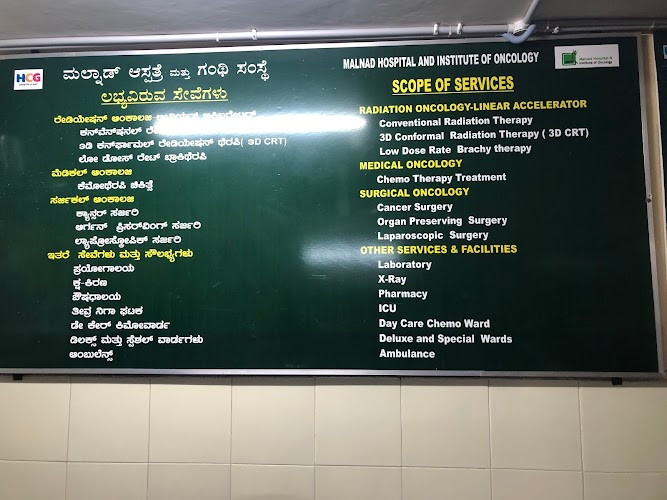 HCG
ಮಲ್ನಾಡ್ ಆಸ್ಪತ್ರೆ ಮತ್ತು ಗಂಥಿ ಸಂಸ್ಥೆ
ಲಭ್ಯವಿರುವ ಸೇವೆಗಳು
ರೇಡಿಯೇಷನ್ ಆಂಕಾಲಜಿ
ಕನ್‌ವೆನ್‌ಷನಲ್
3ಡಿ ಕನ್‌ಫಾರ್ಮಲ್ ರೇಡಿಯೇಷನ್ ಥೆರಪಿ( 3D CRT)
ಲೋ ಡೋಸ್ ರೇಟ್ ಬ್ರಾಕಿಥೆರಪಿ
ಮೆಡಿಕಲ್ ಆಂಕಾಲಜಿ
ಕೆಮೋಥೆರಪಿ ಚಿಕಿತ್ಸೆ
ಸರ್ಜಿಕಲ್ ಆಂಕಾಲಜಿ
ಕ್ಯಾನ್ಸರ್ ಸರ್ಜರಿ
ಆರ್ಗನ್ ಪ್ರಿಸರ್‌ವಿಂಗ್ ಸರ್ಜರಿ
ಲ್ಯಾಪ್ರೋಸ್ಕೋಪಿಕ್ ಸರ್ಜರಿ
ಇತರೆ ಸೇವೆಗಳು ಮತ್ತು ಸೌಲಭ್ಯಗಳು
ಪ್ರಯೋಗಾಲಯ
ಕ್ಷ-ಕಿರಣ
ಔಷಧಾಲಯ
ತೀವ್ರ ನಿಗಾ ಘಟಕ
ಡೇ ಕೇರ್ ಕಿಮೋವಾರ್ಡ
ಡಿಲಕ್ಸ್ ಮತ್ತು ಸ್ಪೆಶಲ್ ವಾರ್ಡಗಳು
ಆಂಬುಲೆನ್ಸ್
MALNAD HOSPITAL AND INSTITUTE OF ONCOLOGY
Malnad Hospital &
Institute of Oncology
SCOPE OF SERVICES
RADIATION ONCOLOGY-LINEAR ACCELERATOR
Conventional Radiation Therapy
3D Conformal Radiation Therapy ( 3D CRT)
Low Dose Rate Brachy therapy
MEDICAL ONCOLOGY
Chemo Therapy Treatment
SURGICAL ONCOLOGY
Cancer Surgery
Organ Preserving Surgery
Laparoscopic Surgery
OTHER SERVICES & FACILITIES
Laboratory
X-Ray
Pharmacy
ICU
Day Care Chemo Ward
Deluxe and Special Wards
Ambulance